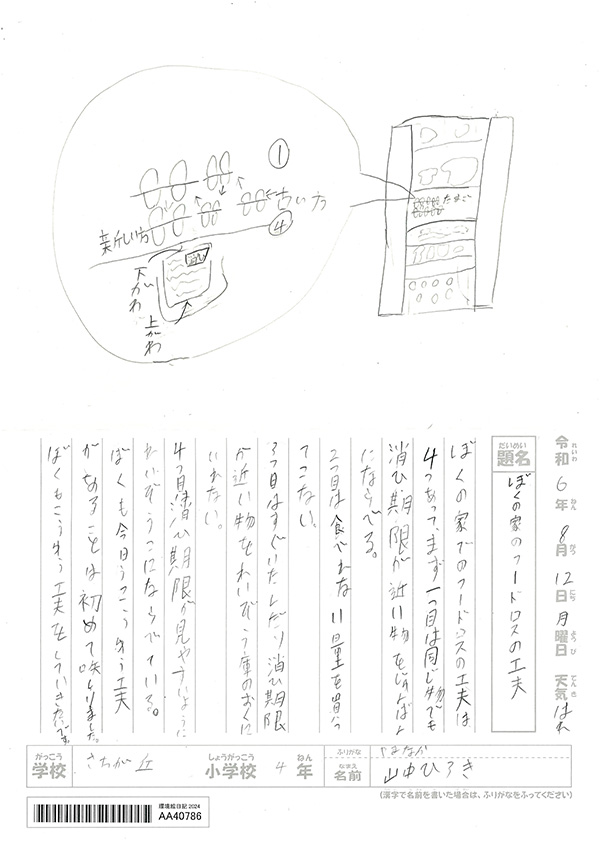 ①
古い方
④
新しい方
下がわ
上がわ
たまご
令和6年8月12日月曜日 天気はれ
れいわ ねん がつ にち ようび てんき
だいめい
題名
ぼくの家のフードロスの工夫
ぼくの家でのフードロスの工夫は
4つあって、まず一つ目は同じ物でも
消ひ期限が近い物をじゅんばん
にならべる。
2つ目は食べれない量を買っ
てこない。
3つ目はすぐいたんだり消ひ期限
が近い物をれいぞう庫のおくに
いれない。
4つ目消ひ期限が見やすいように
れいぞうこにならべている。
ぼくも今日うこう行う工夫
があることは初めて味しりました。
ぼくもこう行う工夫をしていきたいです。
がっこう
学校
さちが丘
しょうがっこう
小学校
4
ねん
年
ふりがな
やまなか
なまえ
名前
山中ひろき
(漢字で名前を書いた場合は、ふりがなをふってください)
環境絵日記2024
AA40786